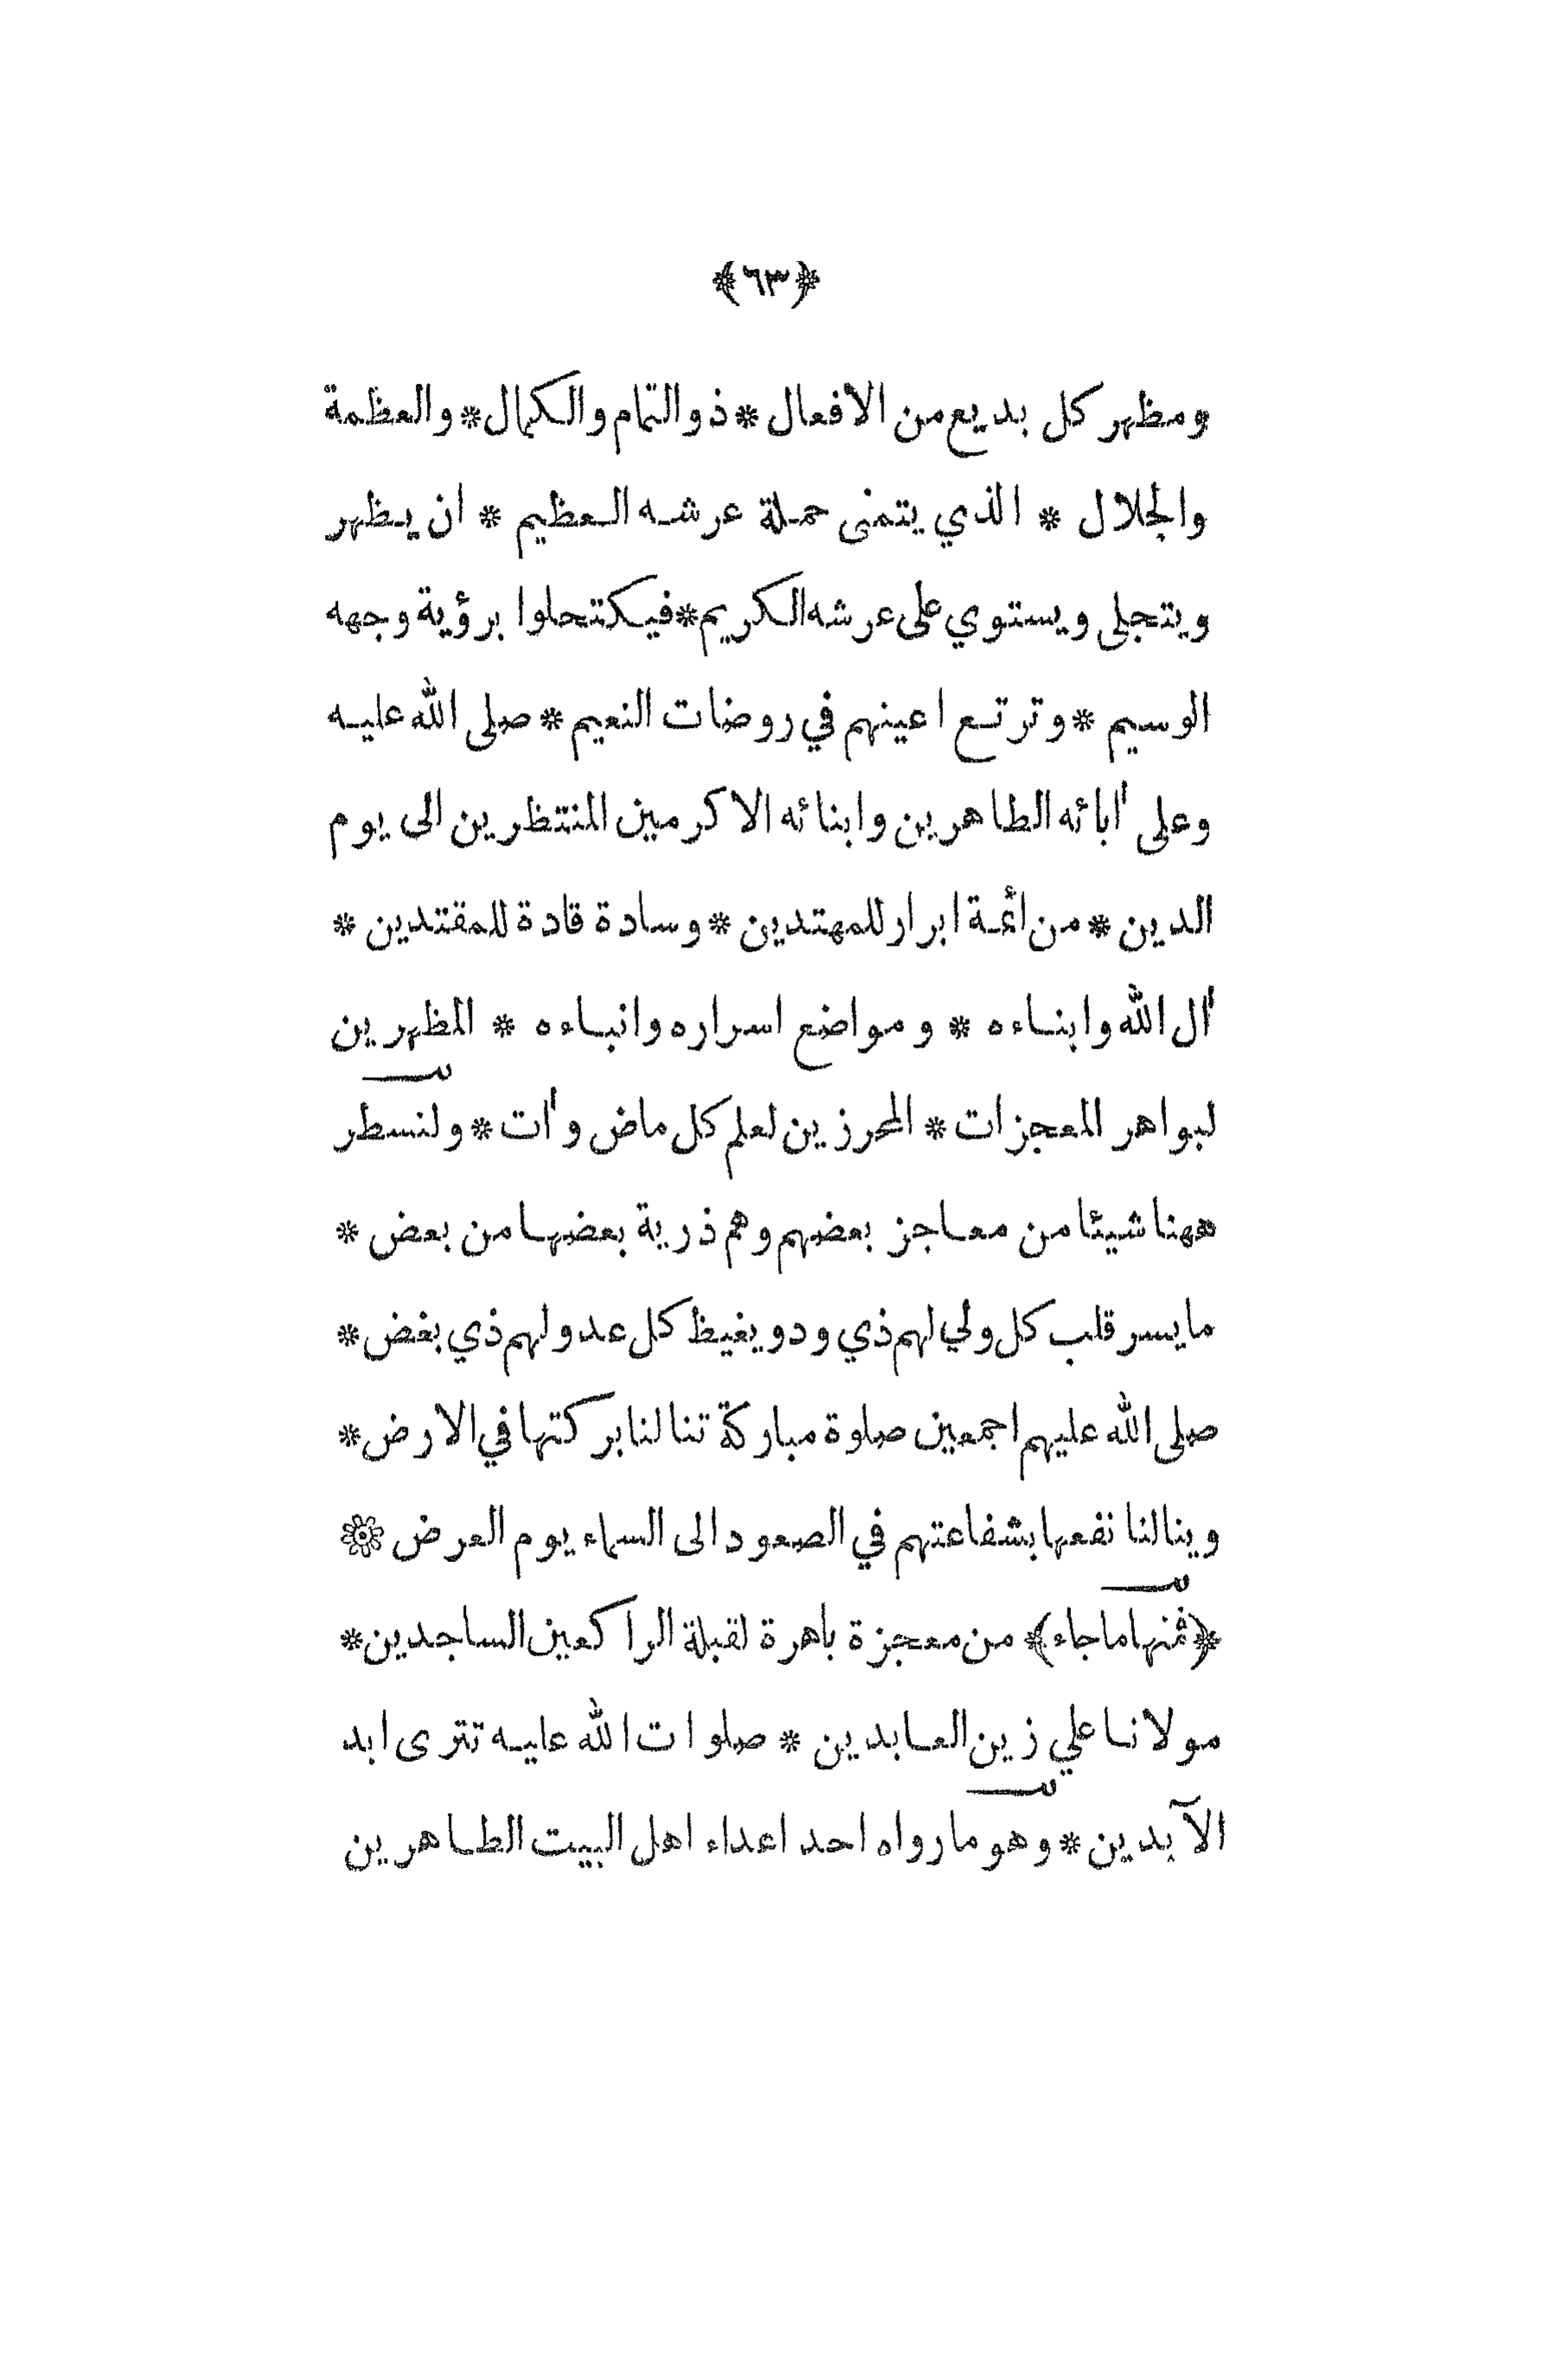 ﴿٦٣﴾
ومظهر كل بديع من الافعال * ذو التمام والكمال * والعظمة
والجلال * الذي يتمنى حملة عرشه العظيم * ان يظهر
ويتجلى ويستوي على عرشه الكريم * فيكتحلوا برؤية وجهه
الوسيم * وترتع اعينهم في روضات النعيم * صلى الله عليه
وعلى اٰبائه الطاهرين وابنائه الاكرمين المنتظرين الى يوم
الدين * من أئمة ابرار للمهتدين * وسادة قادة للمقتدين *
اٰل الله وابناءه * ومواضع اسراره وانباءه * المظهرين
لبواهر المعجزات * المحرزين لعلم كل ماض واٰت * ولنسطر
ههنا شيئا من معاجز بعضهم وهم ذرية بعضها من بعض *
ما يسر قلب كل ولي لهم ذي ود ويغيظ كل عدو لهم ذي بغض *
صلى الله عليهم اجمعين صلوة مباركة تنالنا بركتها في الارض *
وينالنا نفعها بشفاعتهم في الصعود الى السماء يوم العرض ۞
﴿فمنها ما جاء﴾ من معجزة باهرة لقبلة الراكعين الساجدين *
مولانا علي زين العابدين * صلوات الله عليه تترى ابد
الآبدين * وهو ما رواه احد اعداء اهل البيت الطاهرين